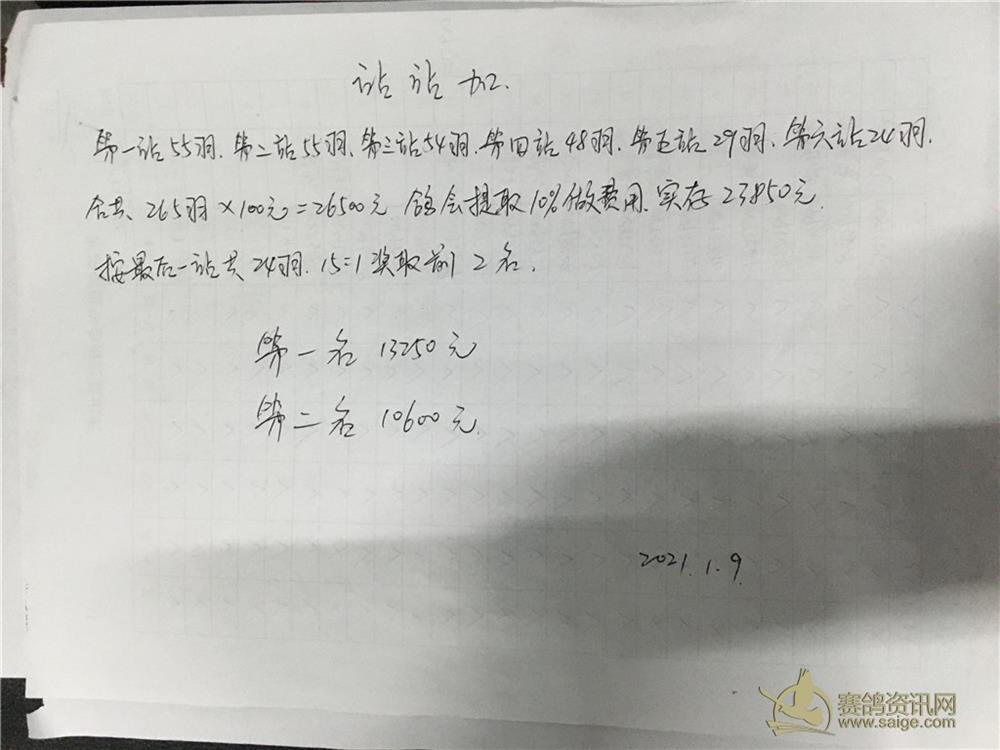 站站加.
第一站55羽.第二站55羽、第三站54羽.第四站48羽.第五站29羽、第六站24羽.
合共、265羽×100元=26500元 鸽会提取10%做费用.实存23850元.
按最后一站共24羽.15:1奖取前2名.
第一名 13250元
第二名 10600元.
2021.1.9
赛鸽资讯网
www.saige.com